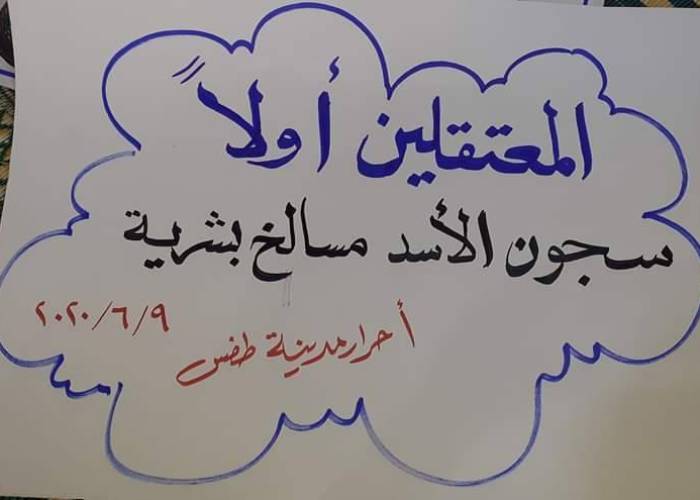 المعتقلين أولاً
سجون الأسد مسالخ بشرية
أحرار مدينة طفس
٢٠٢٠/٦/٩